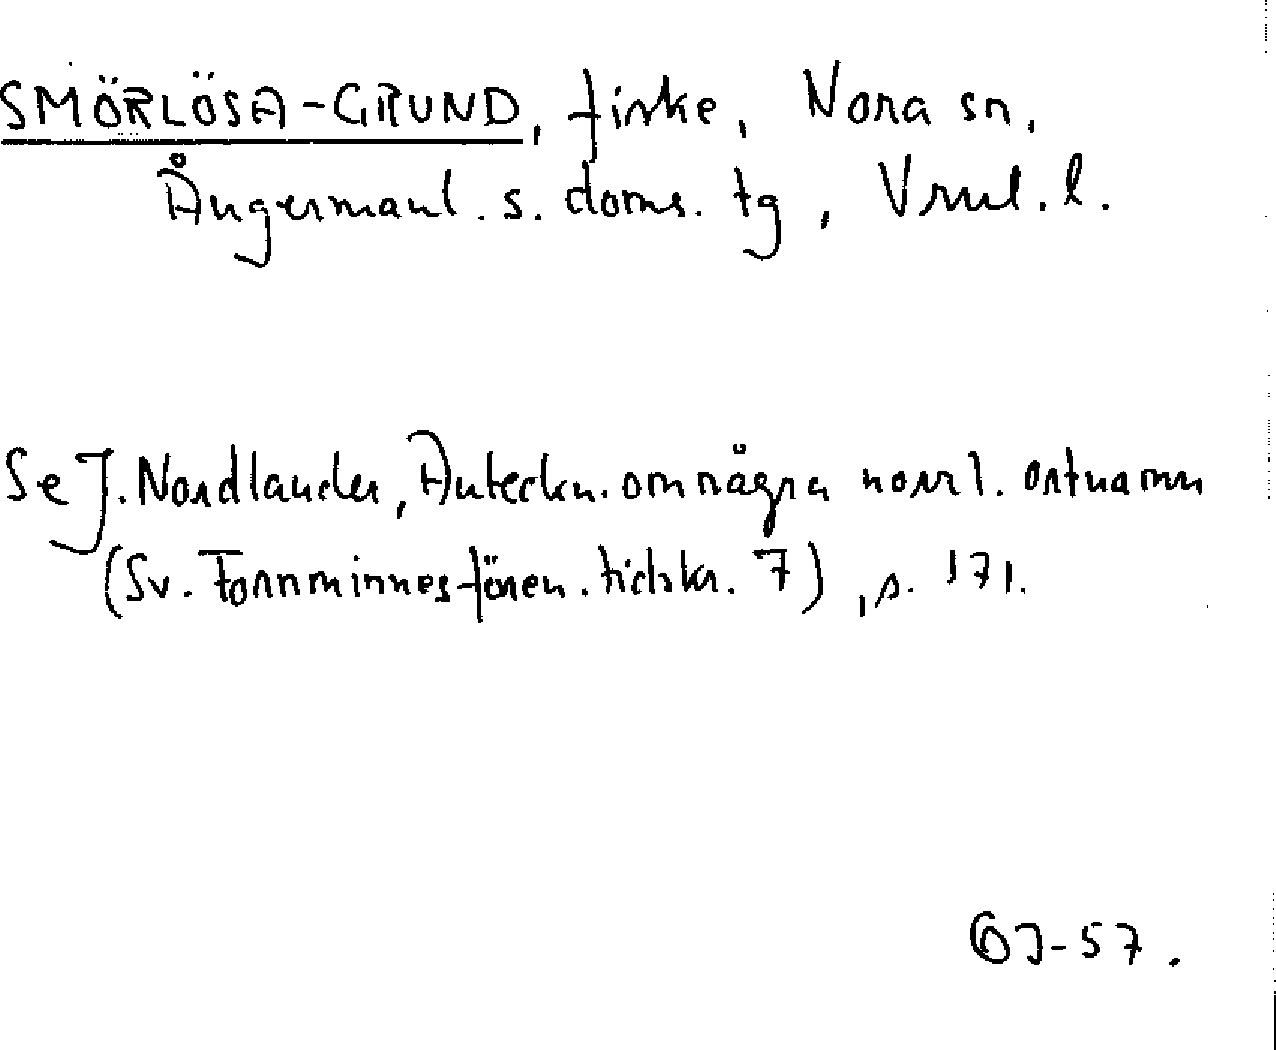 SMÖRLÖSA-GRUND, fiske, Nora sn,
Ångermanl. s. doms. tg, Vrnl. l.
Se J. Nordlander, Anteckn. om några norrl. ortnamn
(Sv. Fornminnesfören. tidskr. 7), s. 171.
-57.